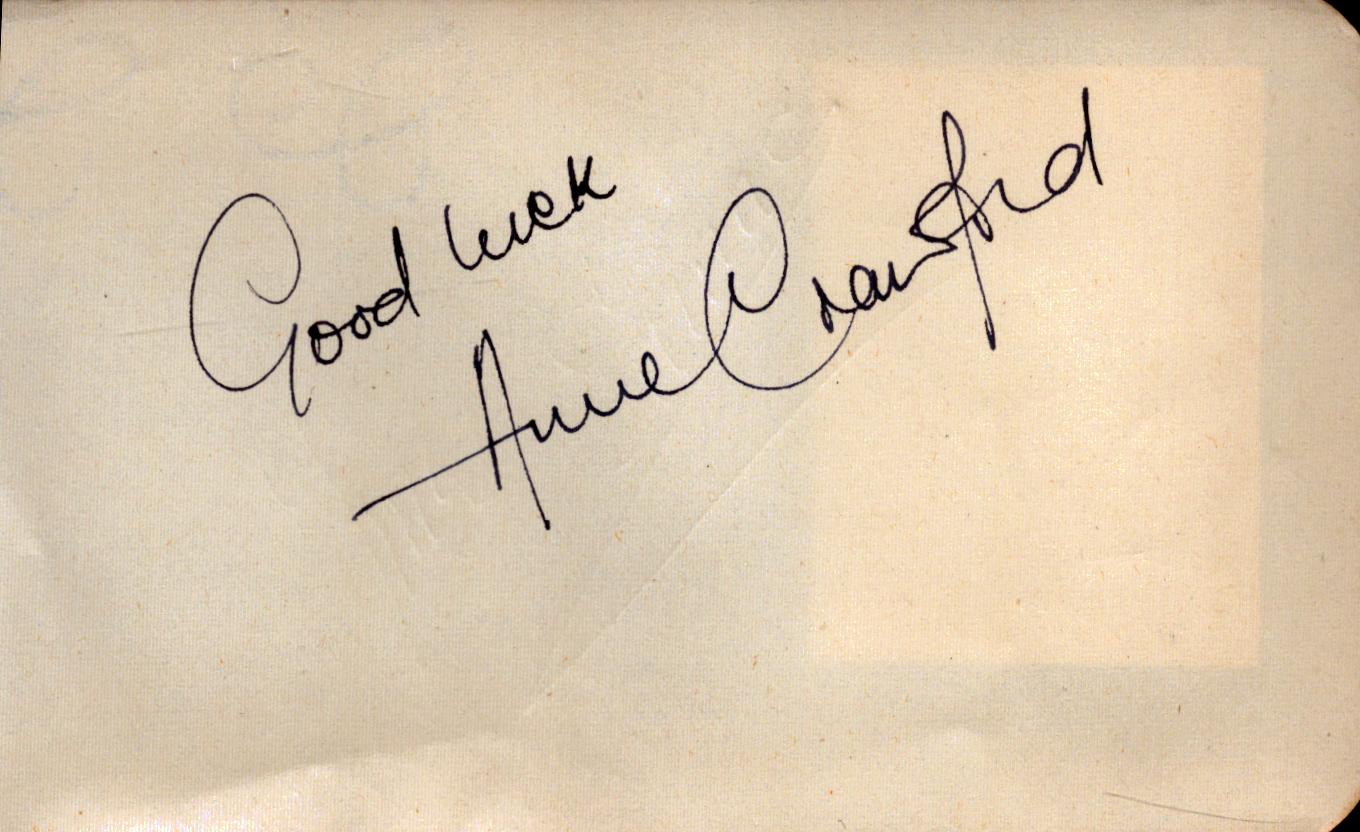 Good luck
Anne Crawford